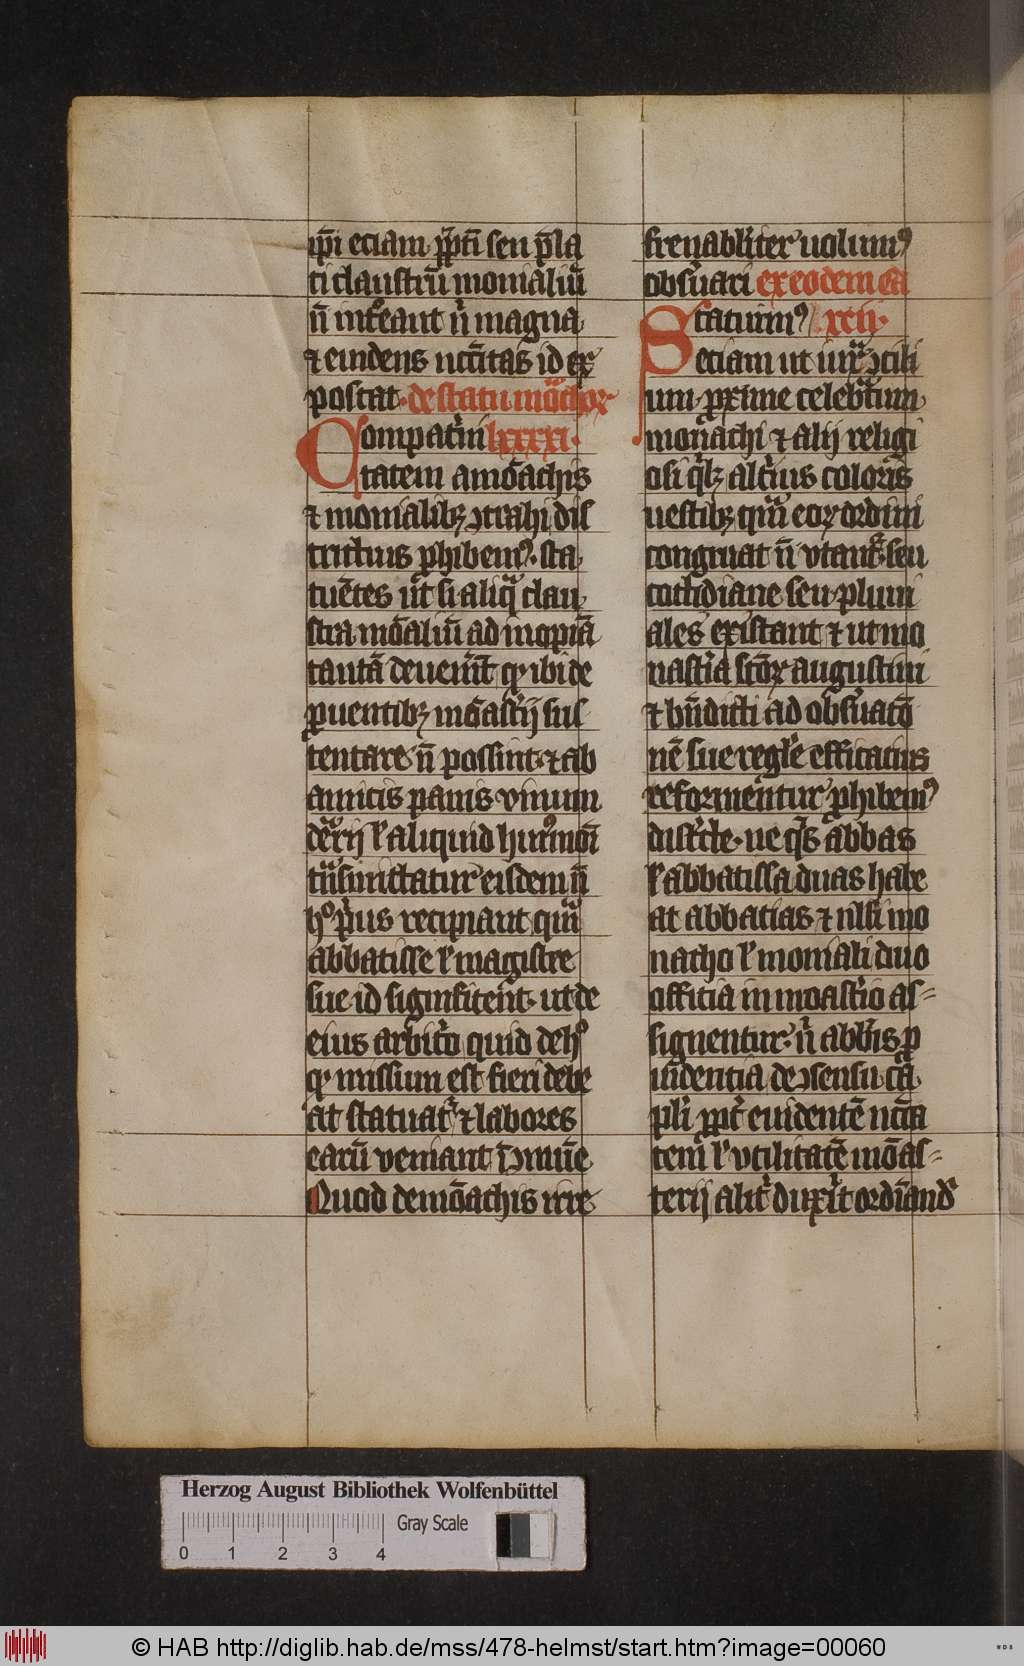 ip̄i eciam p̄p̄ti seu p̄la
ti claustrū monialiū
n̄ int̄eant n̄ magna
⁊ euidens nc̄c̄itas id ex
postat· de statu mōchoꝝ·
Compat̓nī lxxxxi·
tatem a mōachis
⁊ monialibꝫ ꝯtrahi dis
trictius ꝓhibem᷒· sta
tuētes ut si aliq̄ clau
stra mōaliū ad inopiā
tantā deuen̄it̄ qꝫ ibi de
ꝓuentibꝫ mōast̓ij sus
tentare n̄ possint· ⁊ ab
amicis panis vinum
den̄ij ł aliquid hui᷒mōi
t̄n̄smittatur eisdem n̄
h° p̓us recipiant qm̄
abbatisse ł magistre
sue id significent· ut de
eius arbit̓o quid de h°
qꝫ missum est fieri debe
at statuat̓ ⁊ labores
earū veniant ī ꝯmūe
Quod de mōachis irre
frenabłiter uolum᷒
obs̓uari ex eodem ca
Statuim᷒ .xcii·
eciam ut iux̄ ꝯcili
um ꝓxime celeb̓tum
monachi ⁊ alij religi
osi q̓bꝫ alt̓ius coloris
vestibꝫ qm̄ eoꝝ ordini
congruat n̄ vtant̓· seu
cotidiane seu pluui
ales existant ⁊ ut mo
nast̓ia sc̄oꝝ augustini
⁊ bn̄dicti ad obs̓uac̄o
nē sue regłe efficacius
reformentur ꝓhibem᷒
dist̓cte· ne q̓s abbas
ł abbatissa duas habe
at abbatias ⁊ n̄lli mo
nacho ł moniali duo
officia in moast̓io as=
signentur· n̄ abb̄is ꝓ
uidentia de ꝯsensu ca
płi ꝓpt̓ euidentē nc̄c̄ita
tem ł vtilitatē mōas=
terij alit̓ dux̓it ordīand᷒
Herzog August Bibliothek Wolfenbüttel
Gray Scale
0 1 2 3 4
© HAB http://diglib.hab.de/mss/478-helmst/start.htm?image=00060